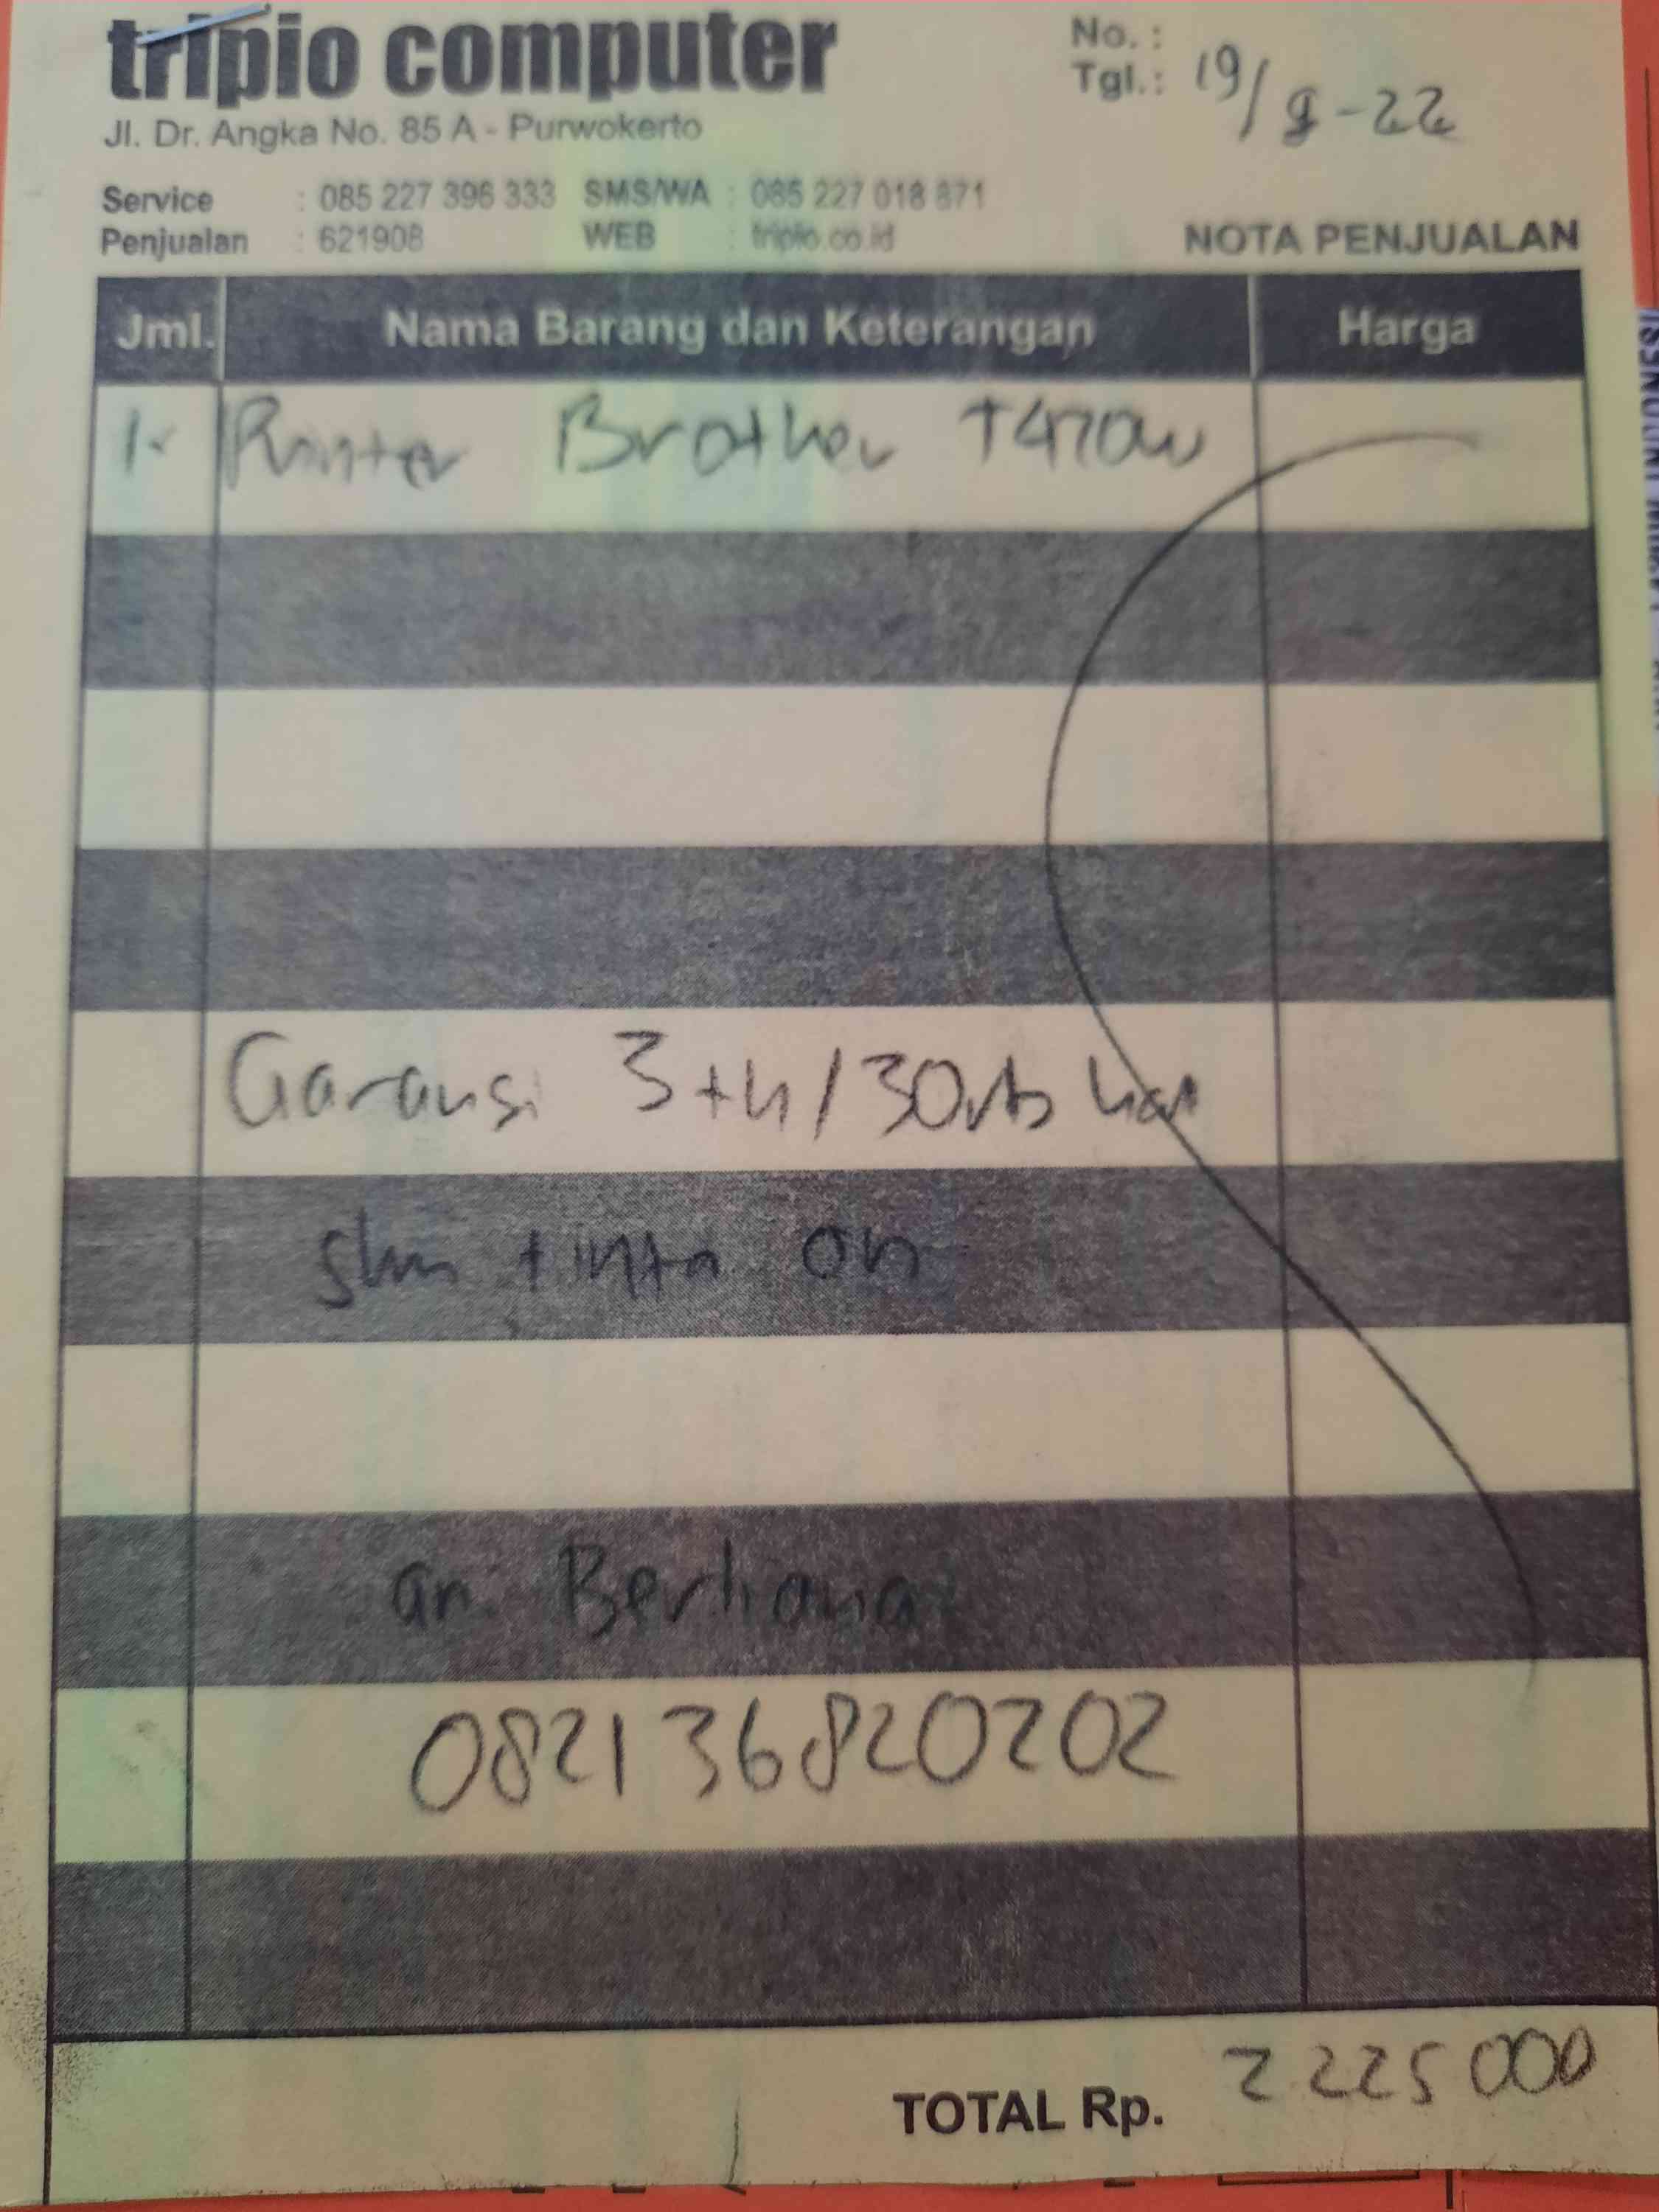 tripio computer
No. :
Tgl. : 19/8-22
Jl. Dr. Angka No. 85 A - Purwokerto
Service : 085 227 396 333 SMS/WA : 085 227 018 871
Penjualan : 621908 WEB : tripio.co.id
NOTA PENJUALAN
Jml. Nama Barang dan Keterangan Harga
1 Printer Brother T420W
Garansi 3 th/30rb
slm tinta on
an. Berliana
082136820202
TOTAL Rp. 2225000